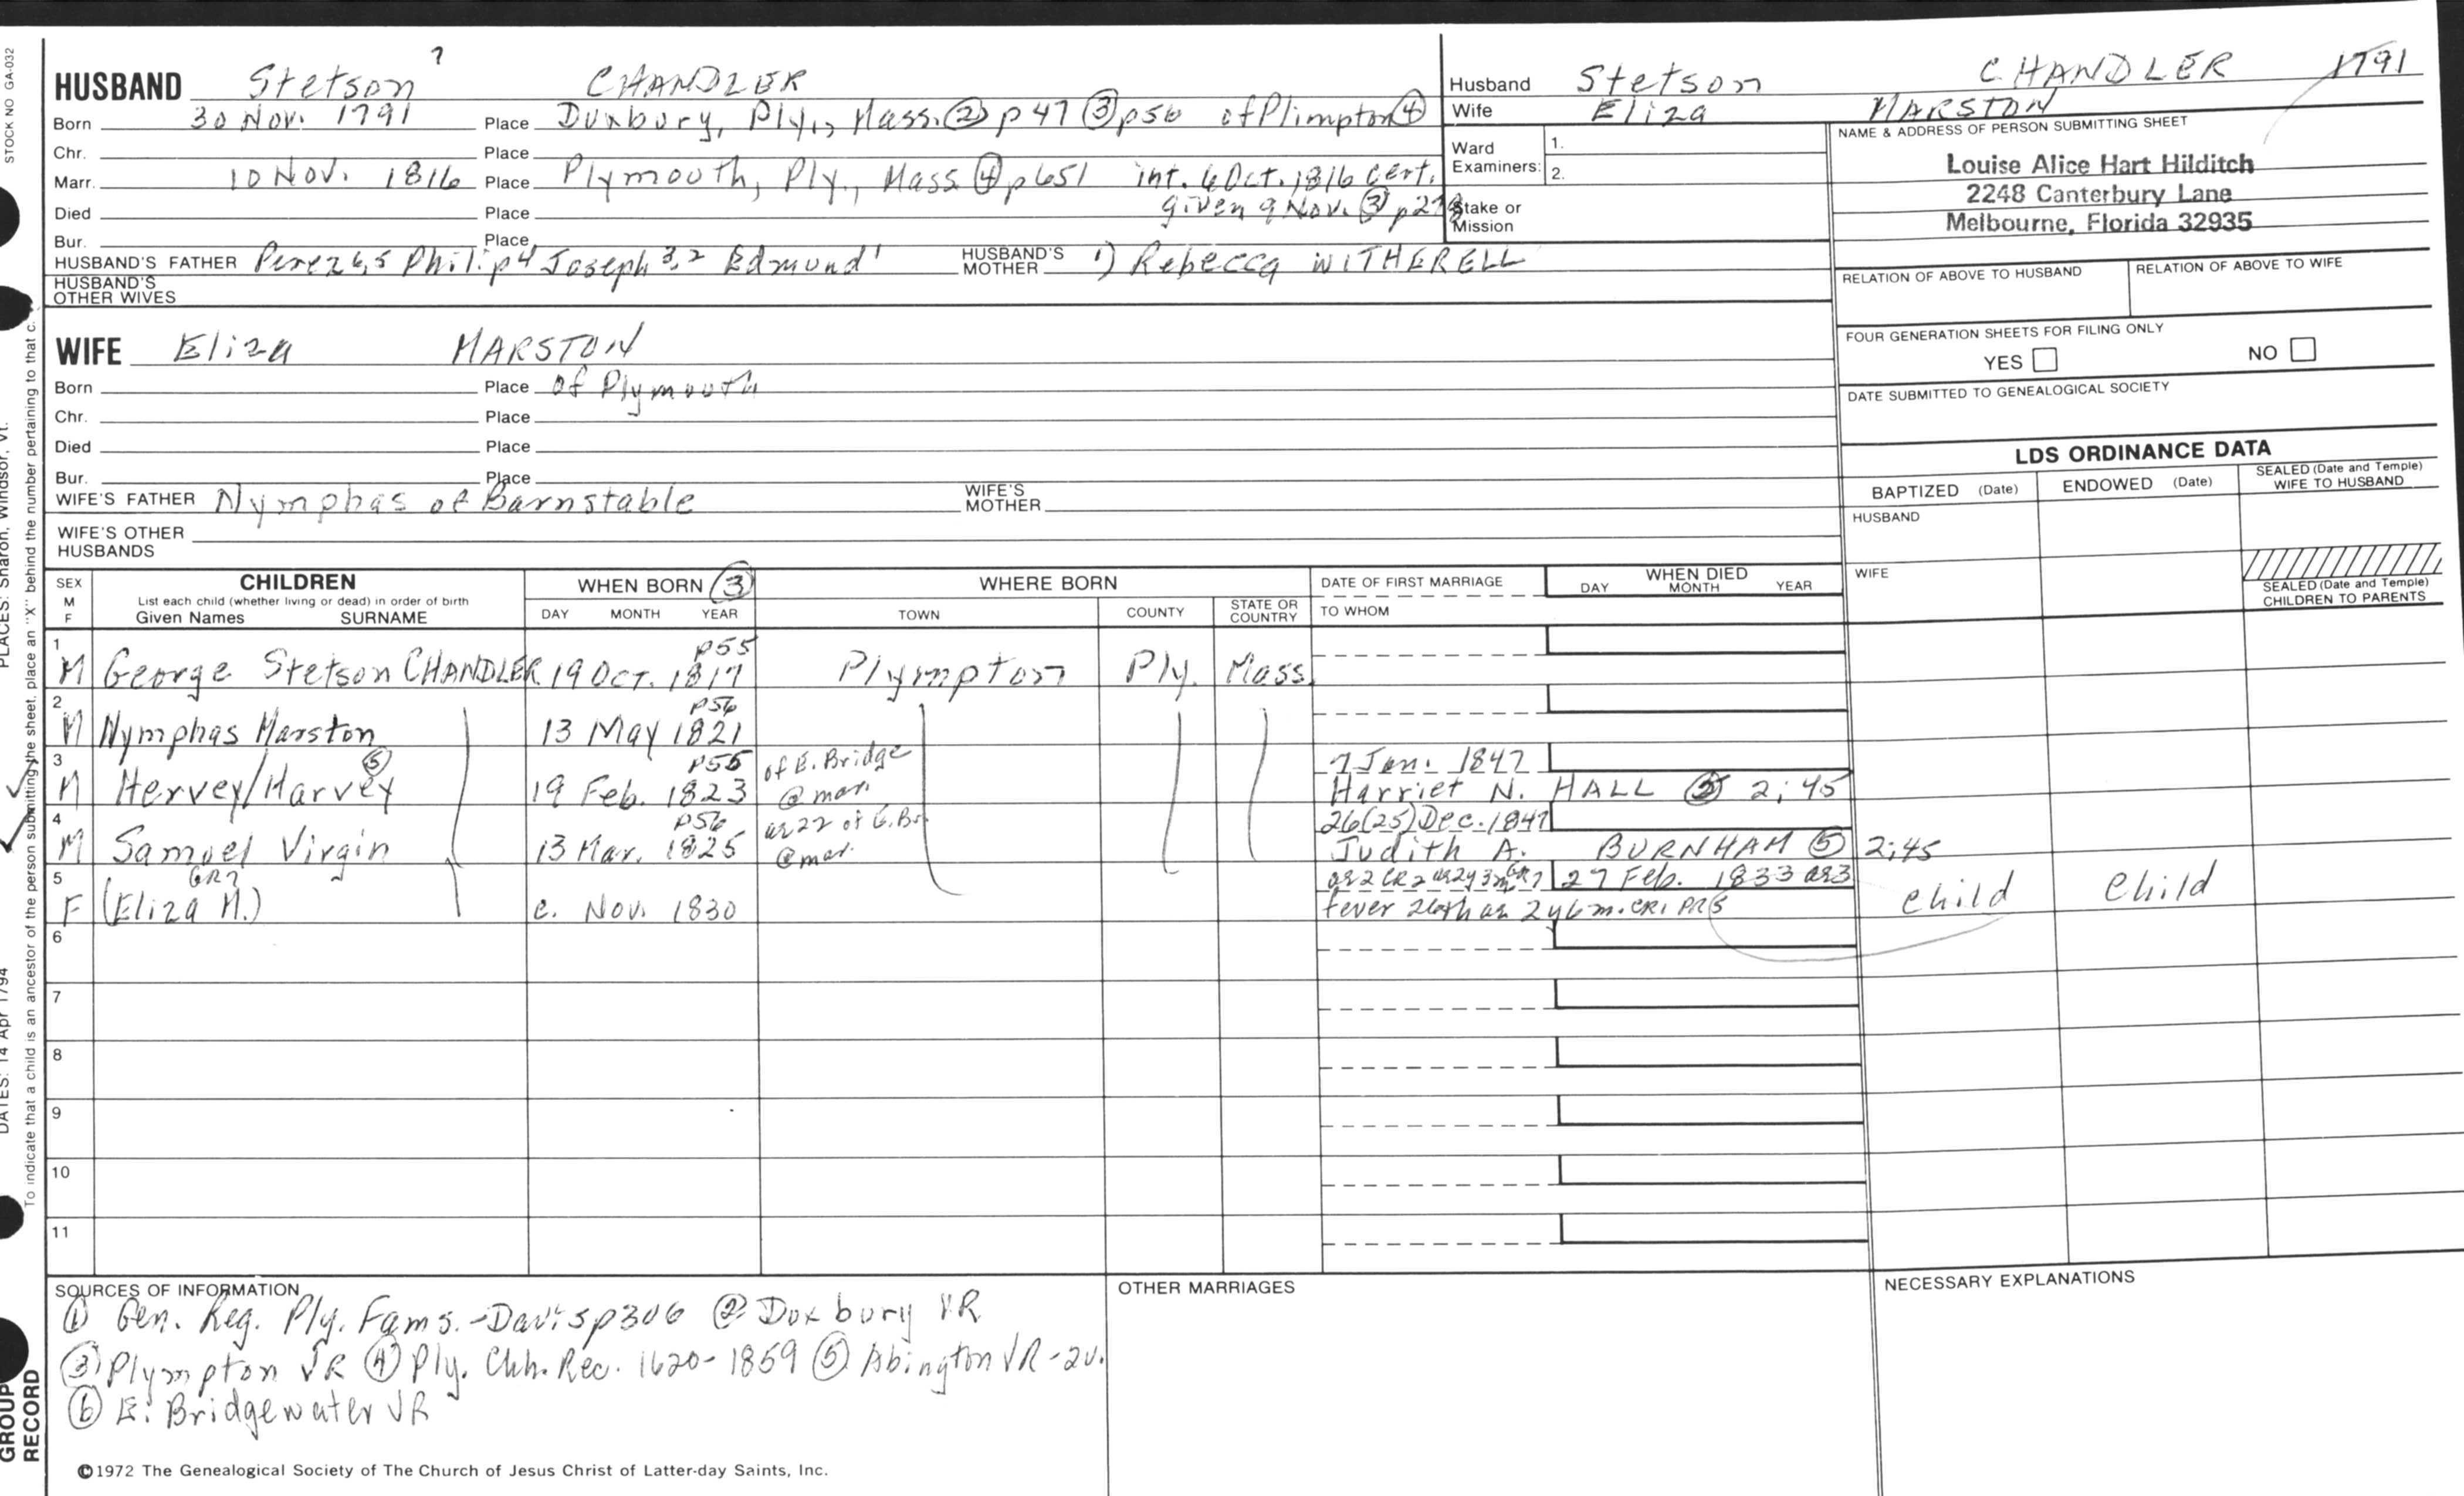 STOCK NO GA-032
HUSBAND Stetson 7 CHANDLER
Born 30 Nov. 1791 Place Duxbury, Ply., Mass. ② p 47 ③ p56 of Plimpton ④
Chr. Place
Marr. 10 Nov. 1816 Place Plymouth, Ply., Mass ④ p651 int. 6 Oct. 1816 Cert.
Died Place given 9 Nov. ③ p
Bur. Place
HUSBAND'S FATHER Perez 6,5 Philip 4 Joseph 3,2 Edmund 1 HUSBAND'S MOTHER 1) Rebecca WITHERELL
HUSBAND'S OTHER WIVES
Husband Stetson CHANDLER 1791
Wife Eliza MARSTON
Ward Examiners: 1.
2.
Stake or Mission
NAME & ADDRESS OF PERSON SUBMITTING SHEET
Louise Alice Hart Hilditch
2248 Canterbury Lane
Melbourne, Florida 32935
RELATION OF ABOVE TO HUSBAND RELATION OF ABOVE TO WIFE
FOUR GENERATION SHEETS FOR FILING ONLY
YES NO
DATE SUBMITTED TO GENEALOGICAL SOCIETY
WIFE Eliza MARSTON
Born Place of Plymouth
Chr. Place
Died Place
Bur. Place
WIFE'S FATHER Nymphas of Barnstable WIFE'S MOTHER
WIFE'S OTHER HUSBANDS
LDS ORDINANCE DATA
BAPTIZED (Date) ENDOWED (Date) SEALED (Date and Temple) WIFE TO HUSBAND
HUSBAND
WIFE
SEALED (Date and Temple) CHILDREN TO PARENTS
SEX M F
CHILDREN
List each child (whether living or dead) in order of birth
Given Names SURNAME
WHEN BORN ③
DAY MONTH YEAR
WHERE BORN
TOWN COUNTY STATE OR COUNTRY
DATE OF FIRST MARRIAGE
TO WHOM
WHEN DIED
DAY MONTH YEAR
1 p55
M George Stetson CHANDLER 19 Oct. 1817 Plympton Ply. Mass.
2 p56
M Nymphas Marston 13 May 1821
3 ⑤ p55 of E. Bridge 7 Jan. 1847
M Hervey/Harvey 19 Feb. 1823 @ mar. Harriet N. HALL ⑤ 2:45
4 p56 ae 22 of E. Br. 26(25) Dec. 1847
M Samuel Virgin 13 Mar. 1825 @ mar. Judith A. BURNHAM ⑤ 2:45
5 GR7 27 Feb. 1833 ae3
F (Eliza M.) c. Nov. 1830 fever 26th ae 2y 6 m. CR1 PR5 child child
6
7
8
9
10
11
SOURCES OF INFORMATION
① Gen. Reg. Ply. Fams. - Davis p306 ② Duxbury VR
③ Plympton VR ④ Ply. Chh. Rec. 1620-1859 ⑤ Abington VR - 2v.
⑥ E. Bridgewater VR
OTHER MARRIAGES
NECESSARY EXPLANATIONS
©1972 The Genealogical Society of The Church of Jesus Christ of Latter-day Saints, Inc.
PLACES: Sharon, Windsor, Vt.
DATES: 14 Apr 1794
To indicate that a child is an ancestor of the person submitting the sheet, place an "X" behind the number pertaining to that c.
GROUP
RECORD